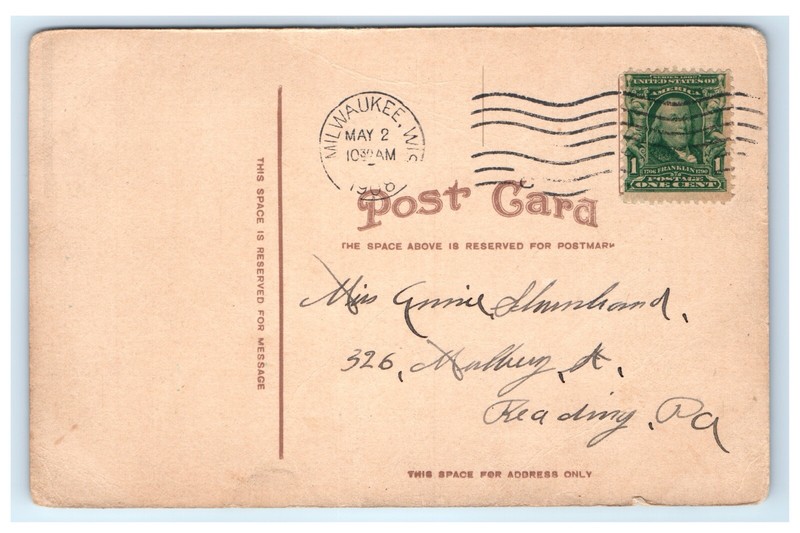 MILWAUKEE, WIS
MAY 2
10 30 AM
1906
SERIES 1902
UNITED STATES OF
AMERICA
1 1
1706 FRANKLIN 1790
POSTAGE
ONE CENT
Post Card
THE SPACE ABOVE IS RESERVED FOR POSTMARK
THIS SPACE IS RESERVED FOR MESSAGE
Miss Annie
326, Mulbery, St.
Reading, Pa
THIS SPACE FOR ADDRESS ONLY